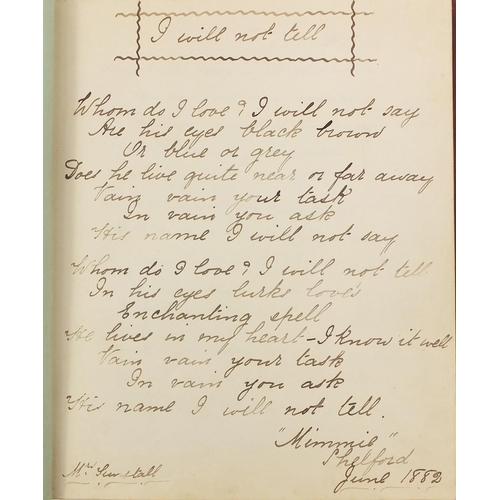 I will not tell
Whom do I love? I will not say
Are his eyes black brown
Or blue or grey
Does he live quite near or far away
Vain vain your task
In vain you ask
His name I will not say
Whom do I love? I will not tell
In his eyes lurks love's
Enchanting spell
He lives in my heart - I know it well
Vain vain your task
In vain you ask
His name I will not tell.
"Mimmie"
Shelford
June 1882